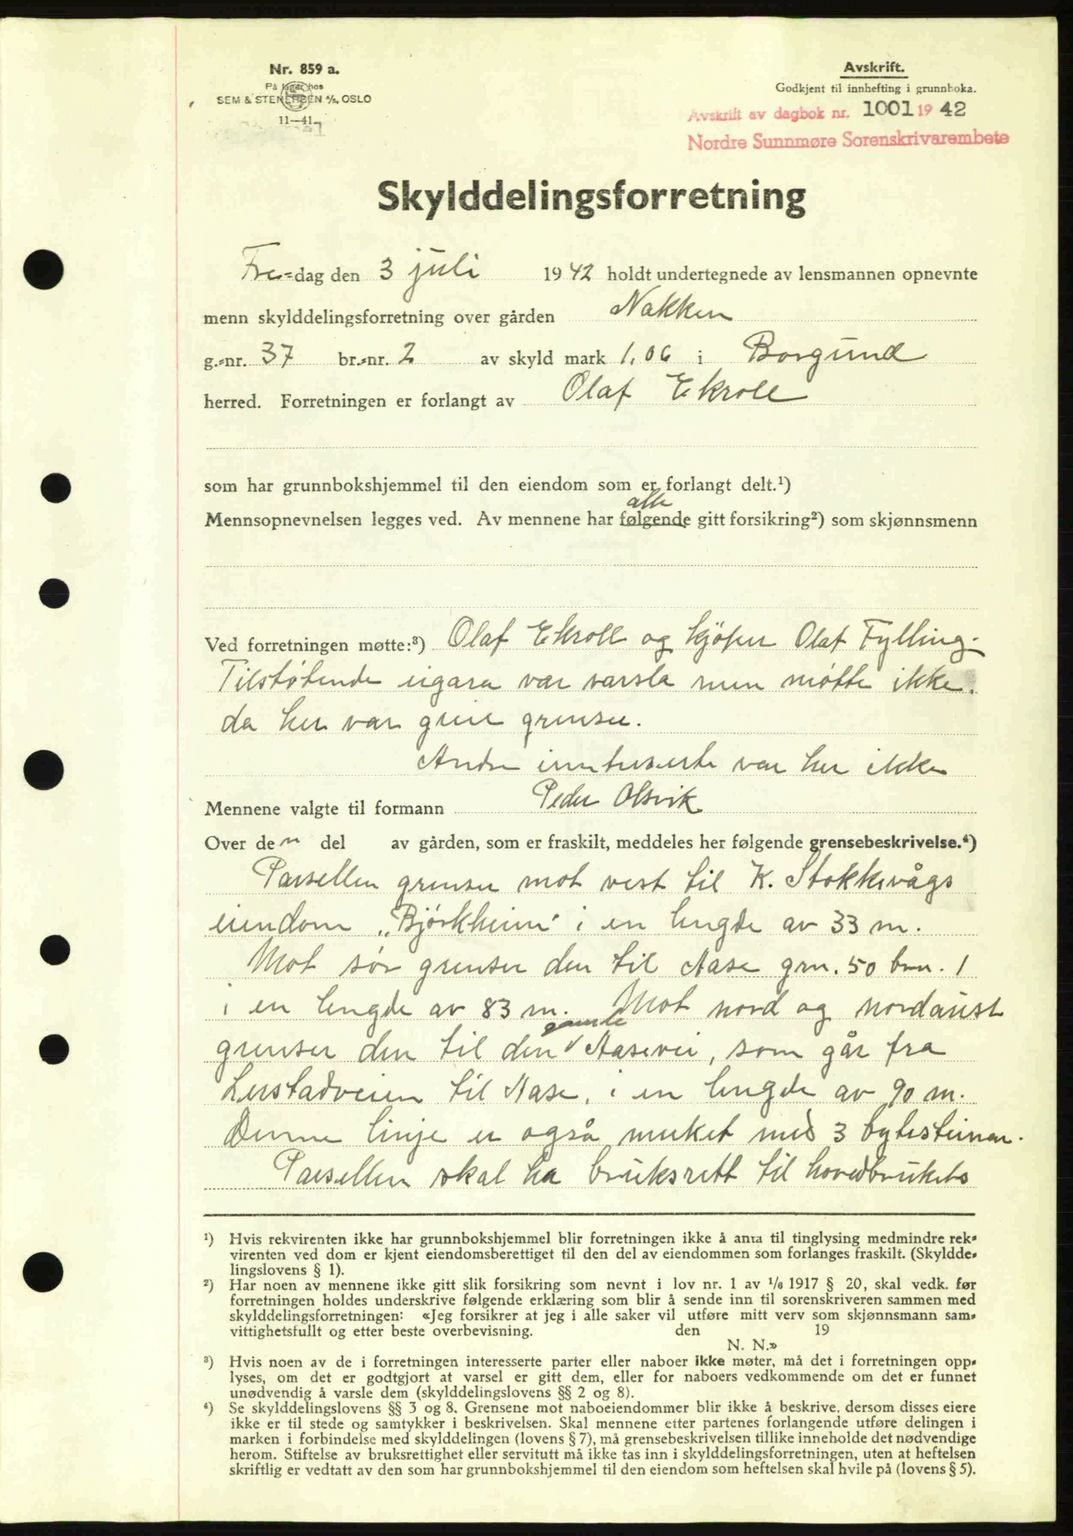 Nr. 859 a.
På lager hos
SEM & STENERSEN A/S, OSLO
11—41.
Avskrift.
Godkjent til innhefting i grunnboka.
Avskrift av dagbok nr. 1001 19 42
Nordre Sunnmøre Sorenskrivarembete
Skylddelingsforretning
Fre-dag den 3 juli 1942 holdt undertegnede av lensmannen opnevnte
menn skylddelingsforretning over gården Nakken
g.-nr. 37 br.-nr. 2 av skyld mark 1,06 i Borgund
herred. Forretningen er forlangt av Olaf Ekroll
som har grunnbokshjemmel til den eiendom som er forlangt delt.¹)
alle
Mennsopnevnelsen legges ved. Av mennene har følgende gitt forsikring²) som skjønnsmenn
Ved forretningen møtte:³) Olaf Ekroll og kjøper Olaf Fylling.
Tilstøtende eigara var varsla men møtte ikke.
da her var greie grenser.
Andre interesserte var her ikke
Mennene valgte til formann Peder Olsvik
Over den del av gården, som er fraskilt, meddeles her følgende grensebeskrivelse.⁴)
Parsellen grenser mot vest til K. Stokkevågs
eiendom „Bjørkheim" i en lengde av 33 m.
Mot sør grenser den til Aase grn. 50 brn. 1
i en lengde av 83 m. Mot nord og nordaust
gamle
grenser den til den Aasevei, som går fra
Lerstadveien til Aase, i en lengde av 90 m.
Denne linje er også merket med 3 bytesteiner.
Parsellen skal ha bruksrett til hovedbrukets
¹) Hvis rekvirenten ikke har grunnbokshjemmel blir forretningen ikke å anta til tinglysing medmindre rek-
virenten ved dom er kjent eiendomsberettiget til den del av eiendommen som forlanges fraskilt. (Skyldde-
lingslovens § 1).
²) Har noen av mennene ikke gitt slik forsikring som nevnt i lov nr. 1 av 1/6 1917 § 20, skal vedk. før
forretningen holdes underskrive følgende erklæring som blir å sende inn til sorenskriveren sammen med
skylddelingsforretningen: «Jeg forsikrer at jeg i alle saker vil utføre mitt verv som skjønnsmann sam-
vittighetsfullt og etter beste overbevisning. den 19
N. N.»
³) Hvis noen av de i forretningen interesserte parter eller naboer ikke møter, må det i forretningen opp-
lyses, om det er godtgjort at varsel er gitt dem, eller for naboers vedkommende om det er funnet
unødvendig å varsle dem (skylddelingslovens §§ 2 og 8).
⁴) Se skylddelingslovens §§ 3 og 8. Grensene mot naboeiendommer blir ikke å beskrive, dersom disses eiere
ikke er til stede og samtykker i beskrivelsen. Skal mennene etter partenes forlangende utføre delingen i
marken i forbindelse med skylddelingen (lovens § 7), må grensebeskrivelsen tillike inneholde det nødvendige
herom. Stiftelse av bruksrettighet eller servitutt må ikke tas inn i skylddelingsforretningen, uten at heftelsen
skriftlig er vedtatt av den som har grunnbokshjemmel til den eiendom som heftelsen skal hvile på (lovens § 5).